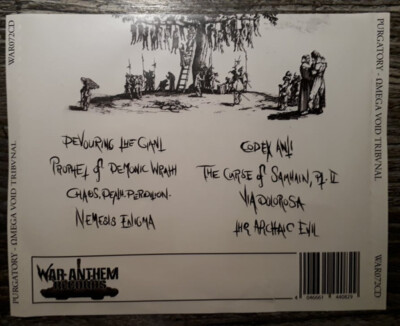 WAR072CD
PURGATORY - ΩMEGA VOID TRIBVNAL
DEVOURING the GIANT
PROPHET of DEMONIC WRATH
CHAOS. DEATH. PERDITION.
NEMESIS ENIGMA
CODEX ANTI
The CURSE of SAMHAIN, Pt. II
VIA DOLOROSA
the ARCHAIC EVIL
WAR-ANTHEM
RECORDS
PURGATORY - ΩMEGA VOID TRIBVNAL
WAR072CD